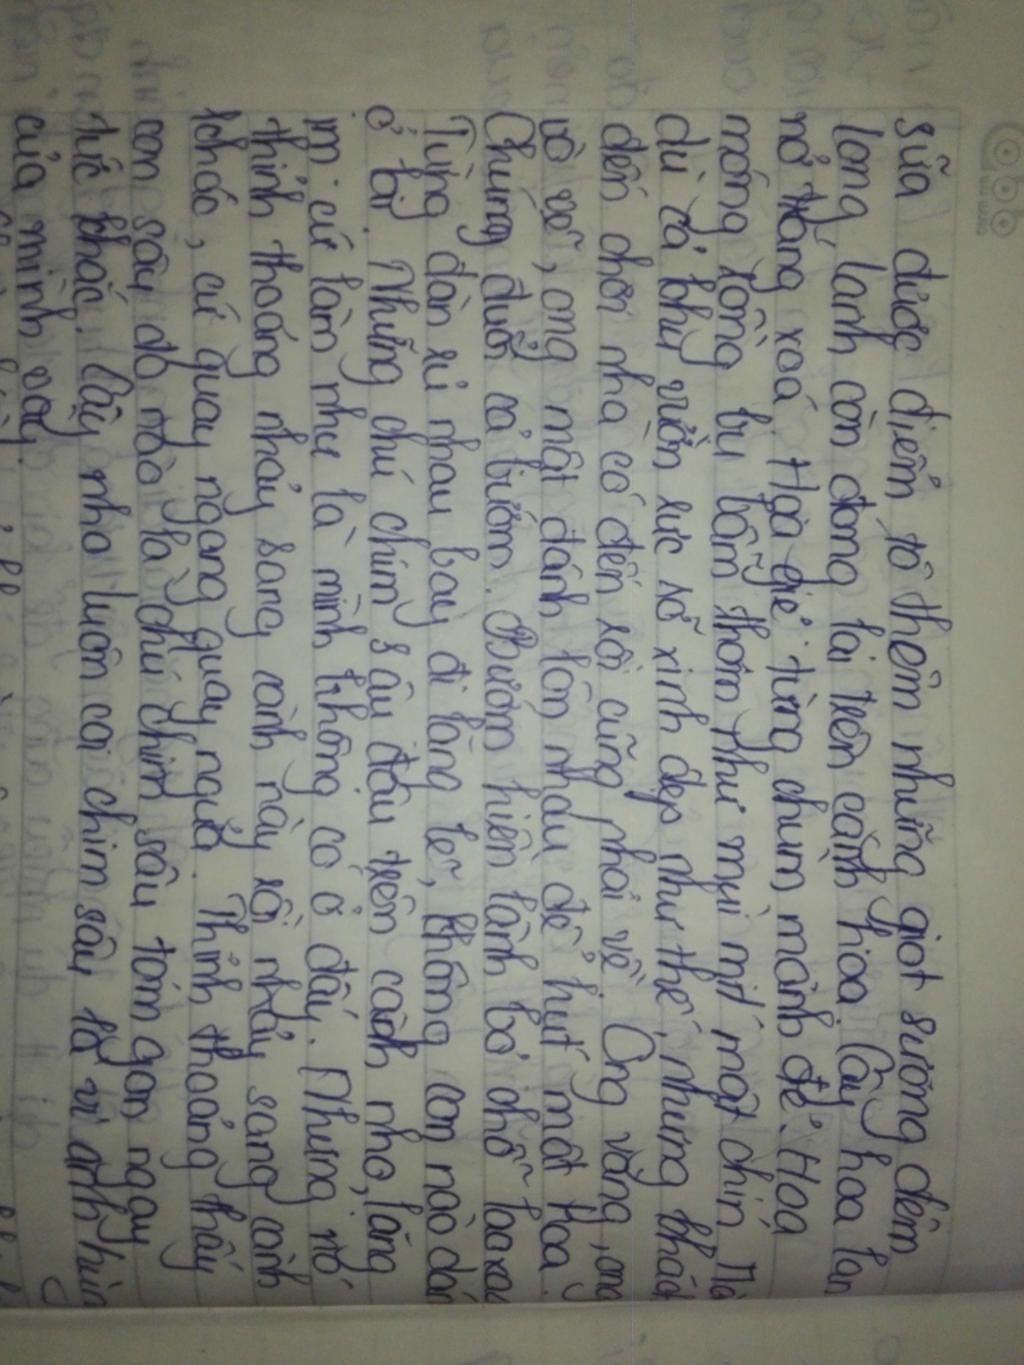 sữa được điểm tô thêm những giọt sương đêm
long lanh còn đọng lại trên cánh hoa. Cây hoa lan
nở trắng xoá. Hoa giẻ từng chùm mảnh dẻ. Hoa
móng rồng bụ bẫm thơm như mùi mít mật chín. Mà
dù cả khu vườn rực rỡ xinh đẹp như thế, nhưng khách
đến chơi nhà có đến rồi cũng phải về. Ong vàng, ong
vò vẽ, ong mật đánh lộn nhau để hút mật hoa.
Chúng đuổi cả bướm. Bướm hiền lành bỏ chỗ lao xao
Từng đàn rủ nhau bay đi lặng lẽ, không con nào dám
ở lại. Những chú chim sâu đậu trên cành nho, lặng
im cứ làm như là mình không có ở đây. Nhưng nó
thỉnh thoảng nhảy sang cành này rồi nhảy sang cành
khác, cứ quay ngang quay ngửa. Thỉnh thoảng thấy
con sâu đo nào là chú chim sâu tóm gọn ngay
tức khắc. Cây nho luôn coi chim sâu là vị anh hùng
của mình vậy.